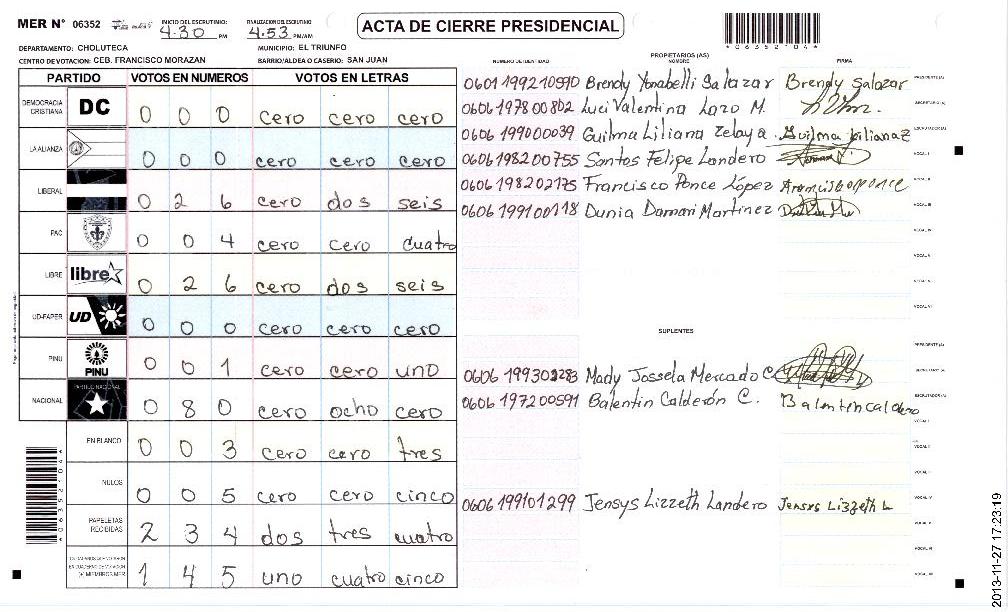 MER N° 06352
INICIO DEL ESCRUTINIO
4:30 PM
FINALIZACION DEL ESCRUTINIO
4:53 PM/AM
ACTA DE CIERRE PRESIDENCIAL
*06352104*
DEPARTAMENTO: CHOLUTECA
MUNICIPIO: EL TRIUNFO
CENTRO DE VOTACION: CEB. FRANCISCO MORAZAN
BARRIO/ALDEA O CASERIO: SAN JUAN
PARTIDO VOTOS EN NUMEROS VOTOS EN LETRAS
DEMOCRACIA CRISTIANA DC 0 0 0 cero cero cero
LA ALIANZA 0 0 0 cero cero cero
LIBERAL 0 2 6 cero dos seis
PAC 0 0 4 cero cero cuatro
LIBRE libre 0 2 6 cero dos seis
UD-FAPER UD 0 0 0 cero cero cero
PINU PINU 0 0 1 cero cero uno
NACIONAL PARTIDO NACIONAL 0 8 0 cero ocho cero
EN BLANCO 0 0 3 cero cero tres
NULOS 0 0 5 cero cero cinco
PAPELETAS RECIBIDAS 2 3 4 dos tres cuatro
CIUDADANOS QUE VOTARON EN CUADERNO DE VOTACION (+) MIEMBROS MER 1 4 5 uno cuatro cinco
*06352104*
PROPIETARIOS (AS)
NUMERO DE IDENTIDAD NOMBRE FIRMA
0601199210590 Brendy Yonabelli Salazar Brendy Salazar PRESIDENTE(A)
0606197800802 Luci Valentina Lazo M. SECRETARIO(A)
060619900039 Guilma Liliana Zelaya Guilma Liliana Z ESCRUTADOR(A)
0606198200755 Santos Felipe Landero VOCAL I
0606198202175 Francisco Ponce López Francisco ponce VOCAL II
0606199100118 Dunia Damari Martinez VOCAL III
VOCAL IV
VOCAL V
VOCAL VI
SUPLENTES
PRESIDENTE(A)
0606199301283 Mady Jossela Mercado C. SECRETARIO(A)
0606197200591 Balentin Calderón C. Balentin caldero ESCRUTADOR(A)
VOCAL I
VOCAL II
VOCAL III
0606199101299 Jensys Lizzeth Landero Jensys Lizzeth L VOCAL IV
VOCAL V
2013-11-27 17:23:19